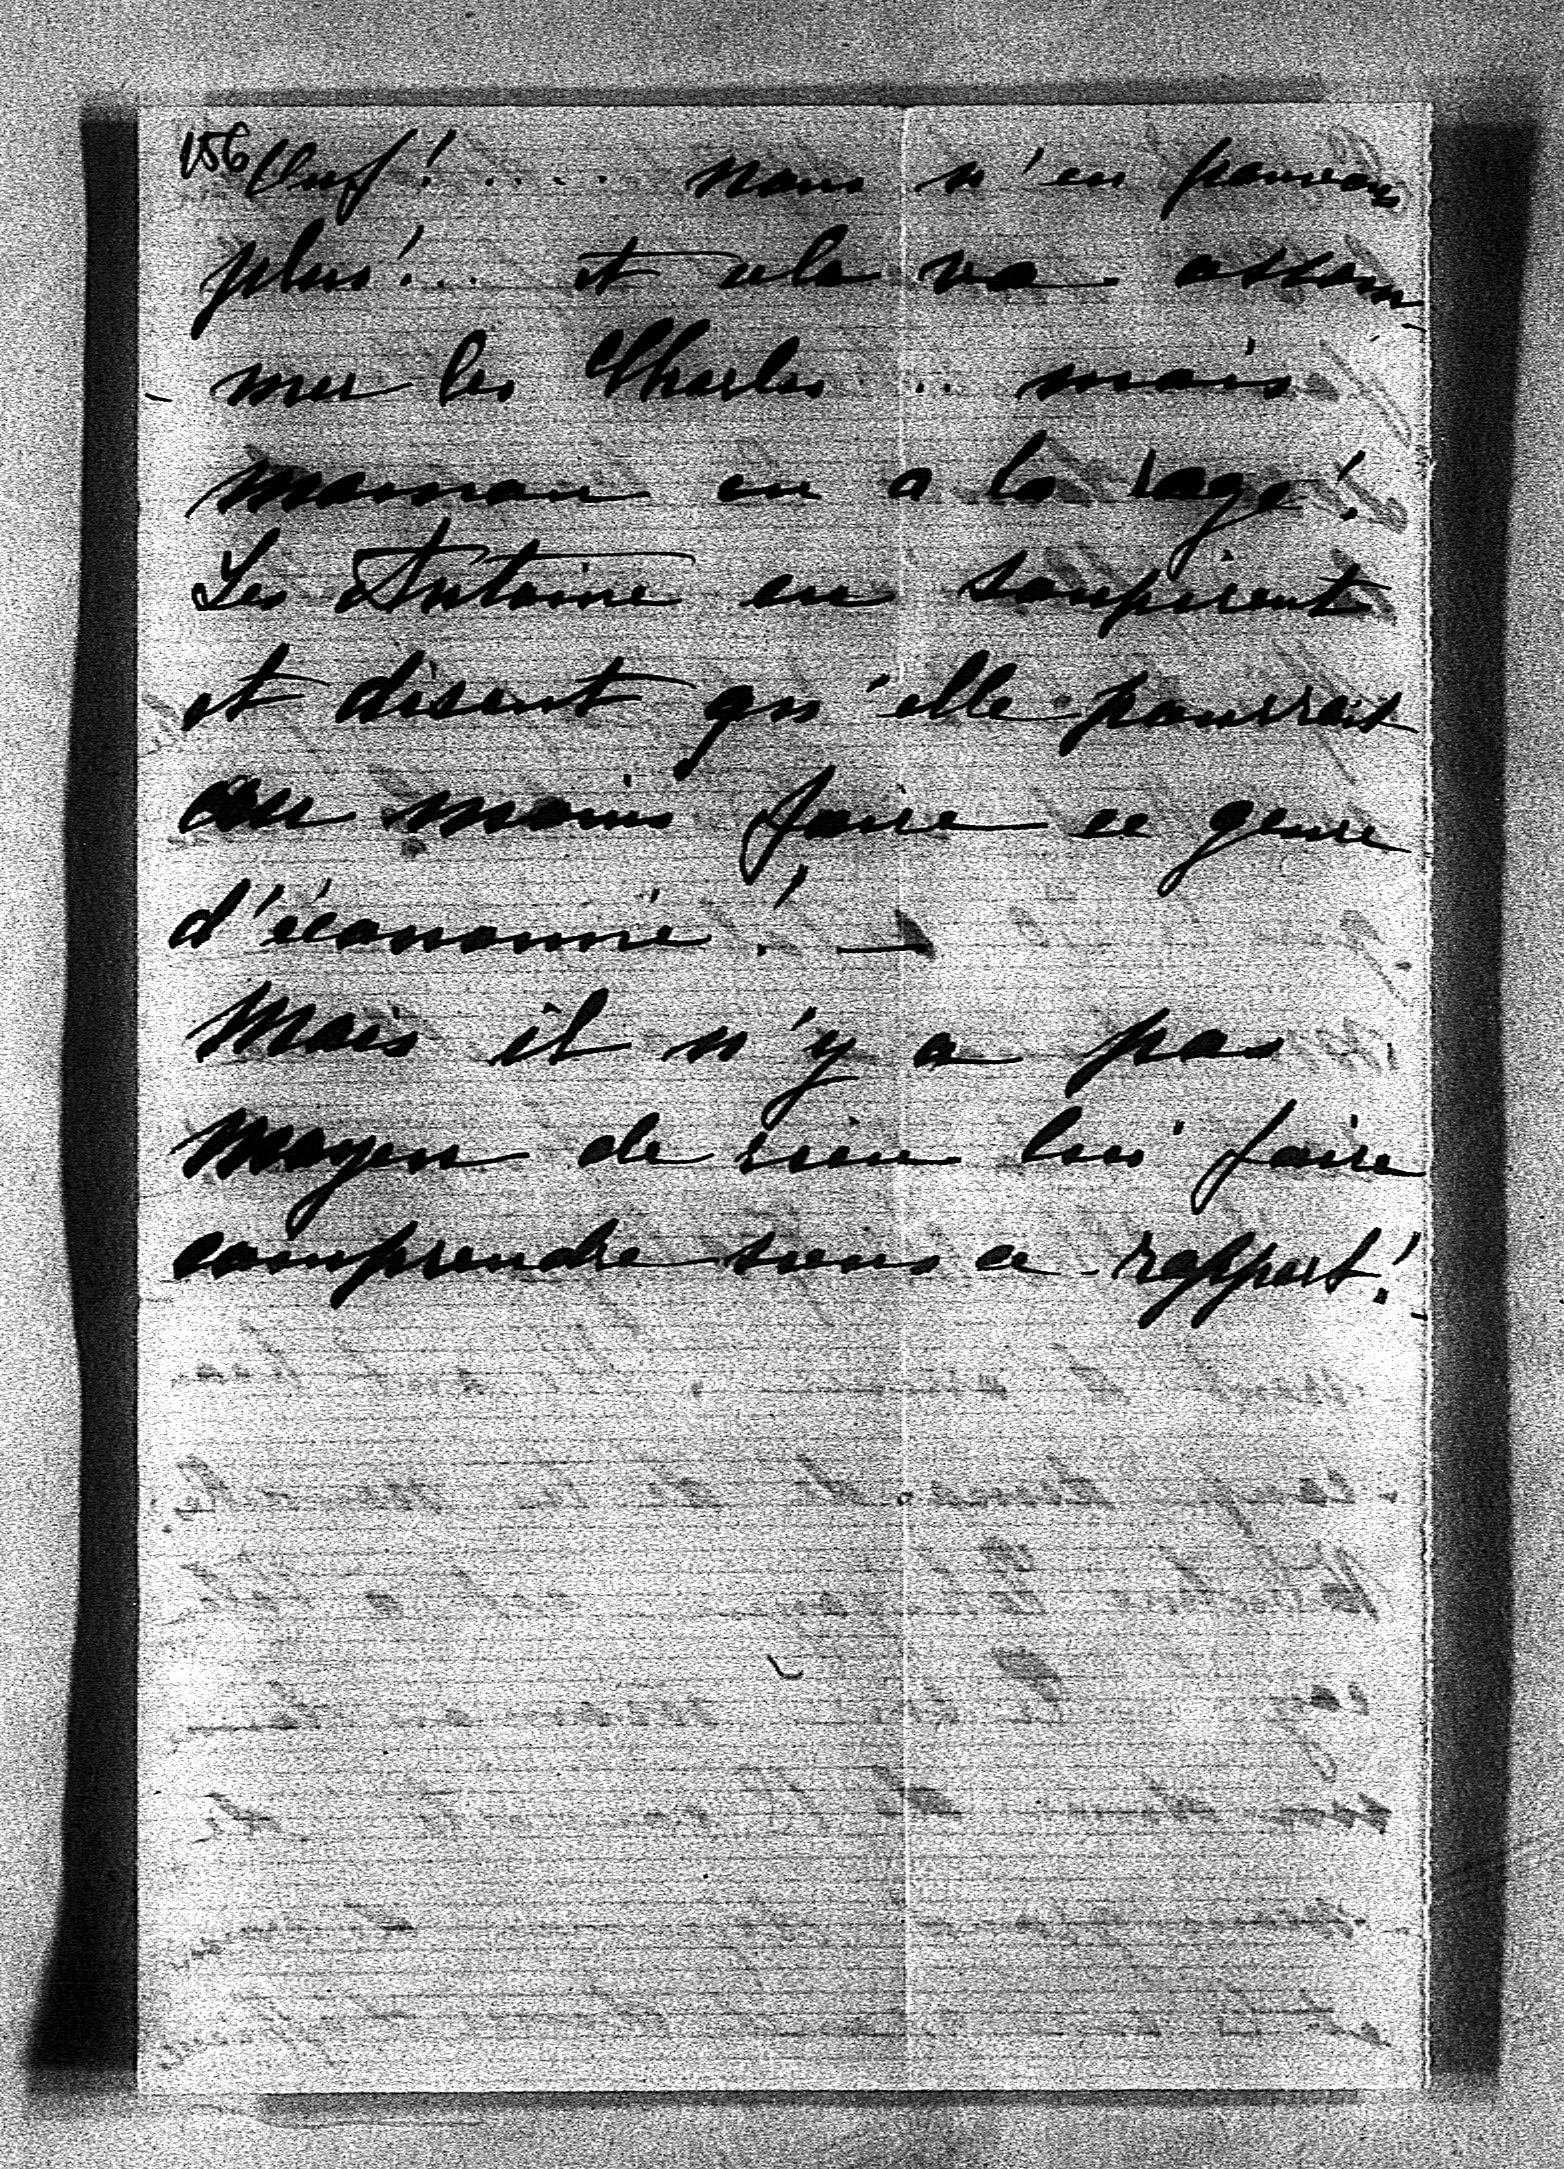 156 Ouf! .... nous n'en pouvons
plus! ... et cela va assom-
-mer les Charles .. mais
maman en a la rage!
Les Antoine en soupirent
et disent qu'elle pourrait
au moins faire ce genre
d'économie! —
Mais il n'y a pas
moyen de rien lui faire
comprendre sous ce rapport! -